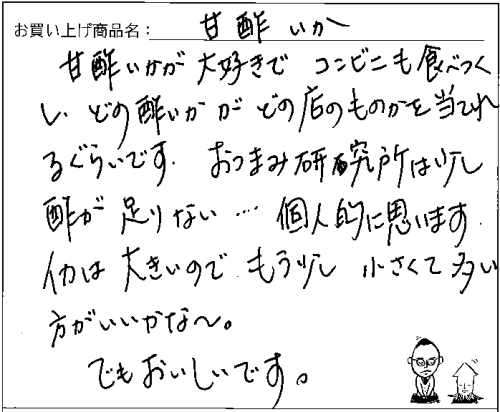 お買い上げ商品名: 甘酢いか
甘酢いかが大好きで コンビニも食べつく
し、どの酢いかがどの店のものかを当てれ
るぐらいです. おつまみ研究所は少し
酢が足りない… 個人的に思います.
イカは大きいので もう少し 小さくて多い
方がいいかな〜。
でもおいしいです。